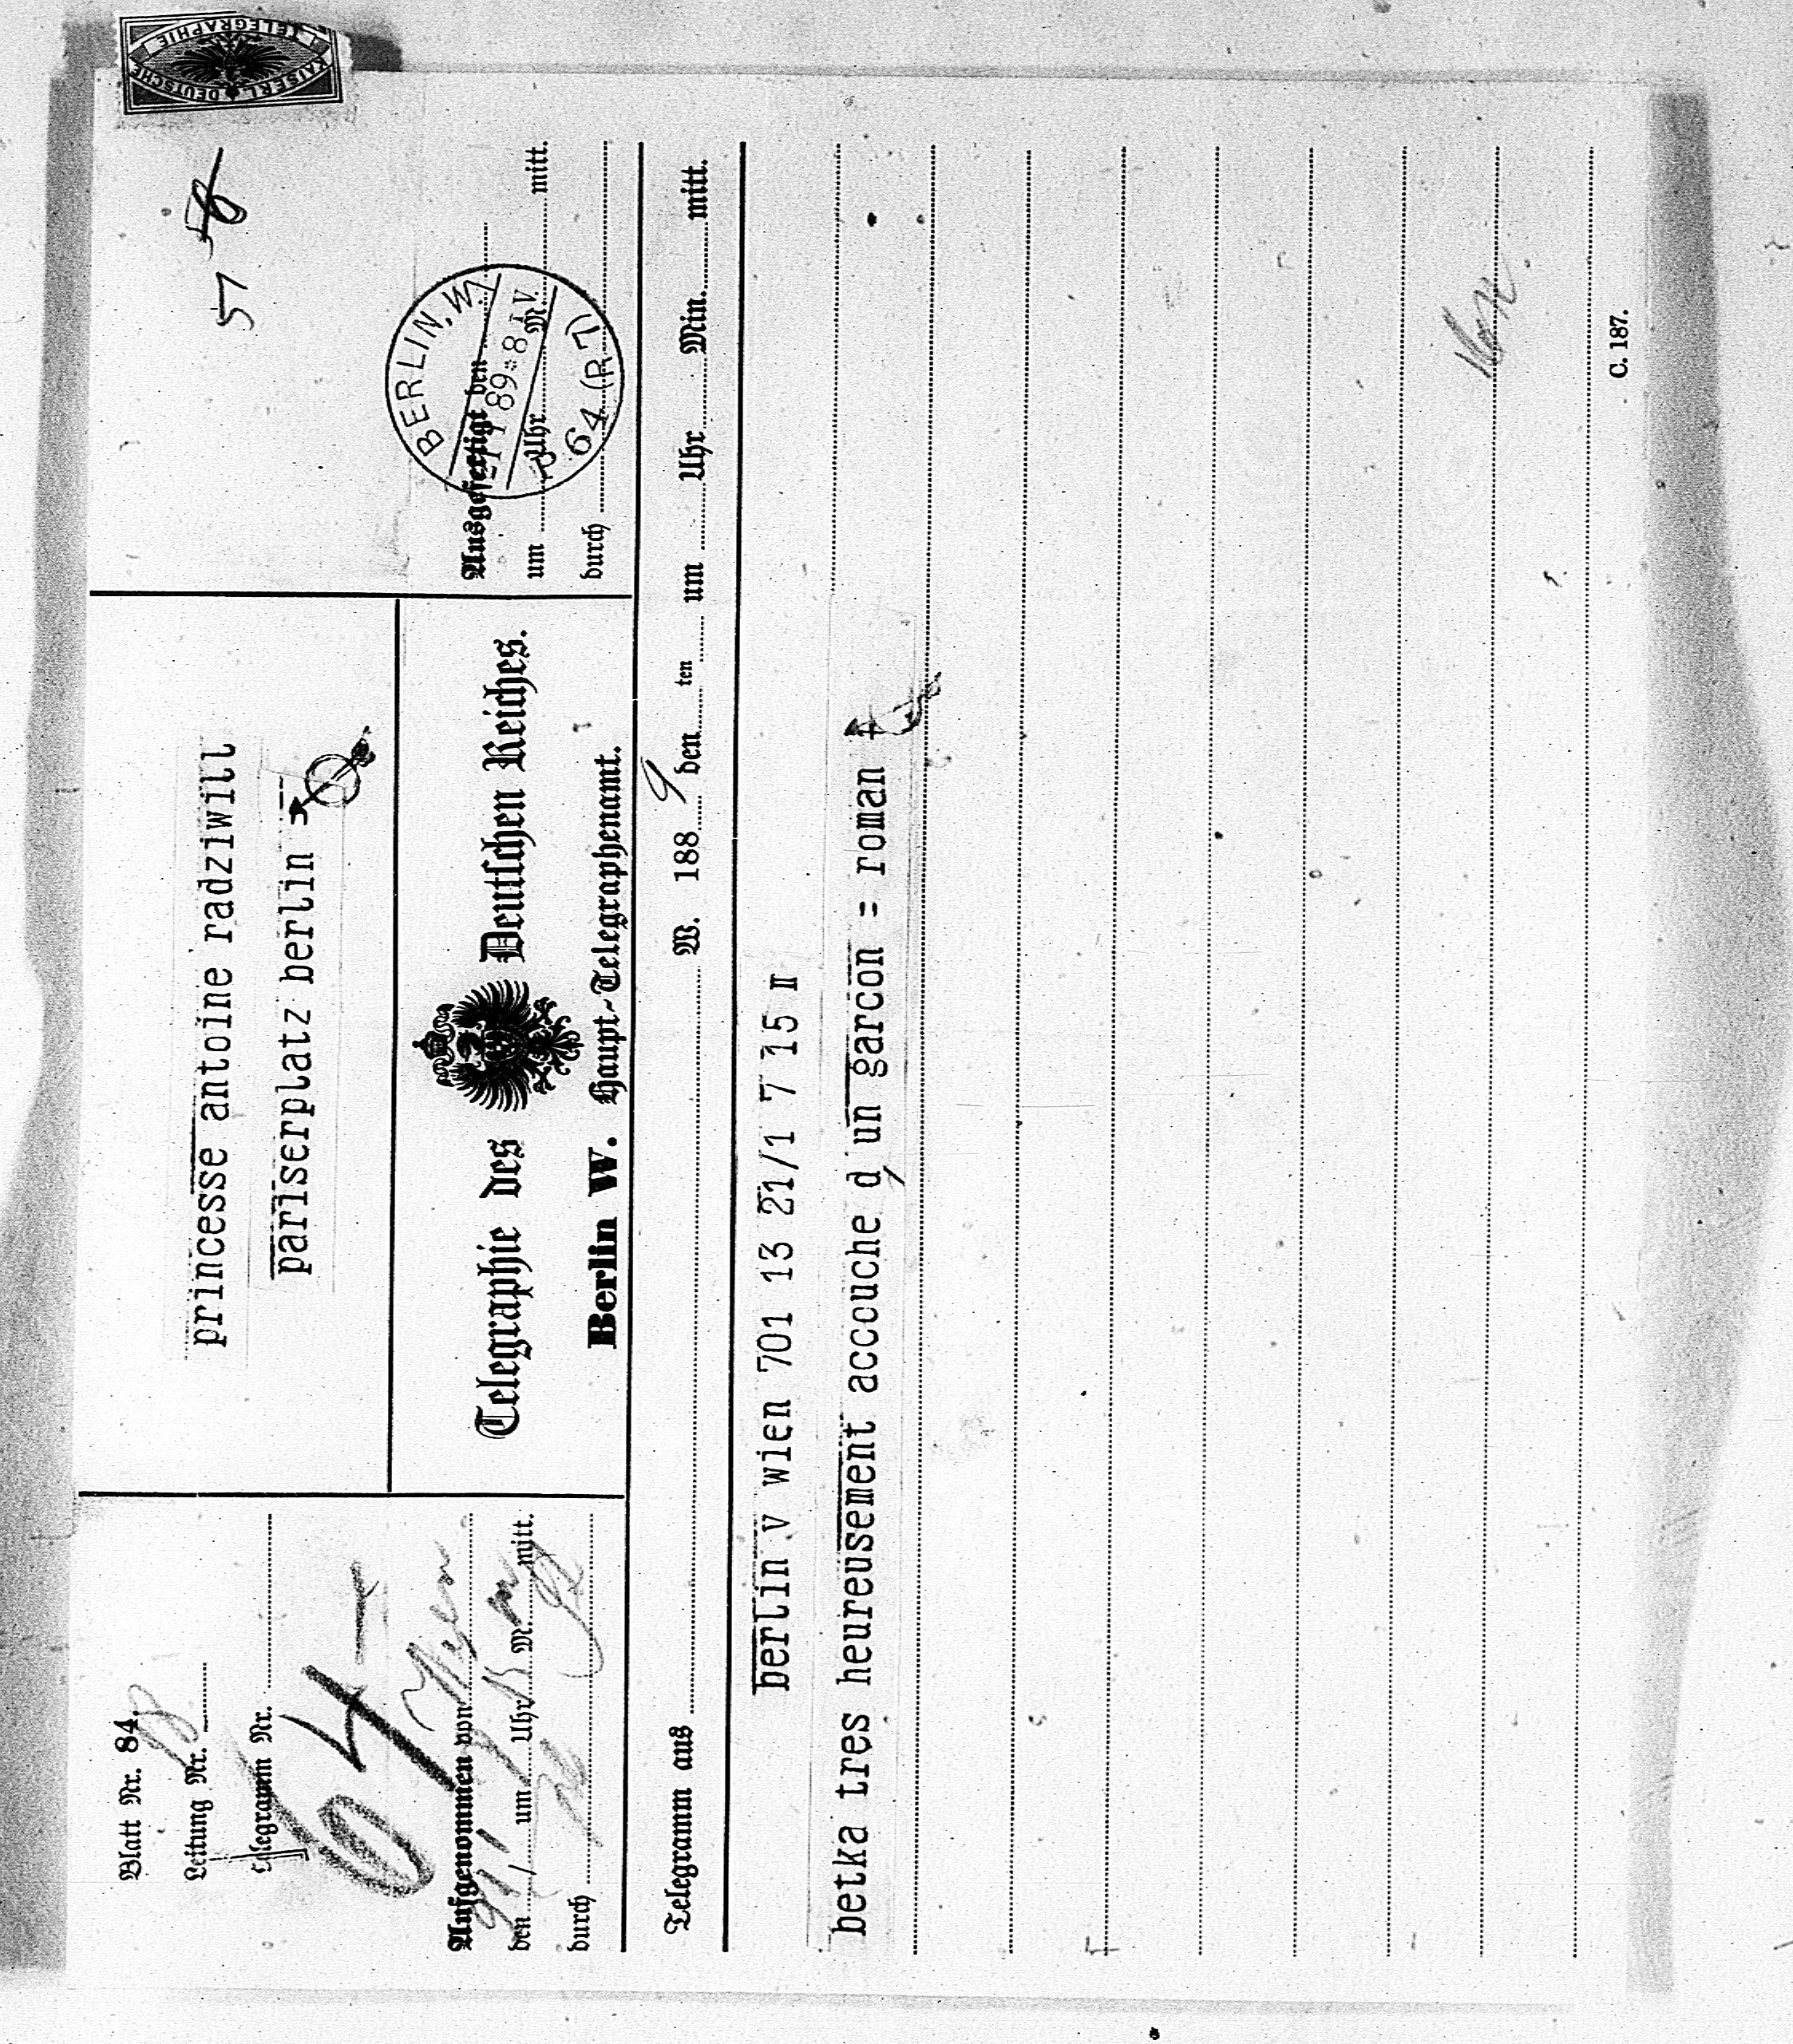 Blatt Nr. 84.
Leitung Nr. 8
Telegramm Nr.
64
Aufgenommen von Wien
den 21/1 um 7 Uhr 15 M. mitt.
durch
princesse antoine radziwill
pariserplatz berlin =
Telegraphie des Deutschen Reiches.
Berlin W. Haupt-Telegraphenamt.
KAISERL. DEUTSCHE
TELEGRAPHIE
57
Ausgefertigt den
um Uhr M. mitt.
durch
BERLIN, W
21 1 89 * 8-  V.
P 64 (R7)
Telegramm aus W. 1889 den ten um Uhr Min. mitt.
berlin v wien 701 13 21/1 7 15 m
betka tres heureusement accouche d, un garcon = roman +
C. 187.